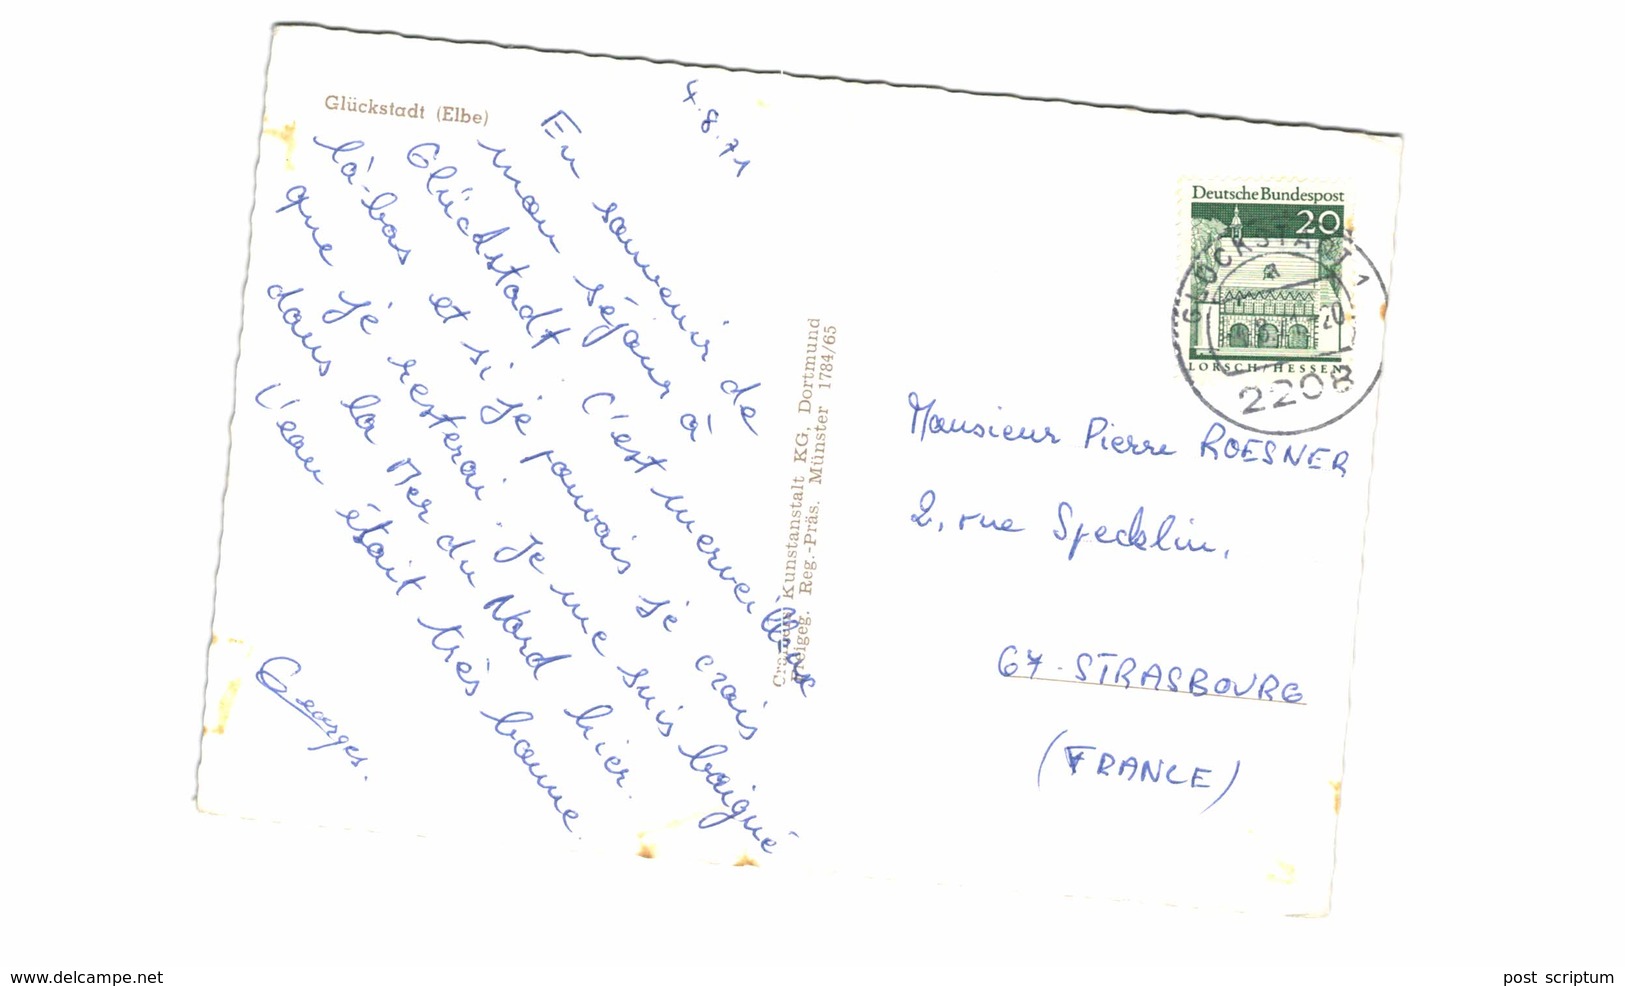 Glückstadt (Elbe)
4.8.71
En souvenir de
mon séjour à
Glückstadt. C'est merveilleux
là-bas et si je pouvais je crois
que je resterai. Je me suis baigné
dans la Mer du Nord hier.
L'eau était très bonne.
Georges.
Cramers Kunstanstalt KG, Dortmund
Freigeg. Reg.-Präs. Münster 1784/65
Deutsche Bundespost
20
LORSCH/HESSEN
GLÜCKSTADT 1
a
2208
Monsieur Pierre ROESNER
2, rue Specklin,
67-STRASBOURG
(FRANCE)
www.delcampe.net
post scriptum